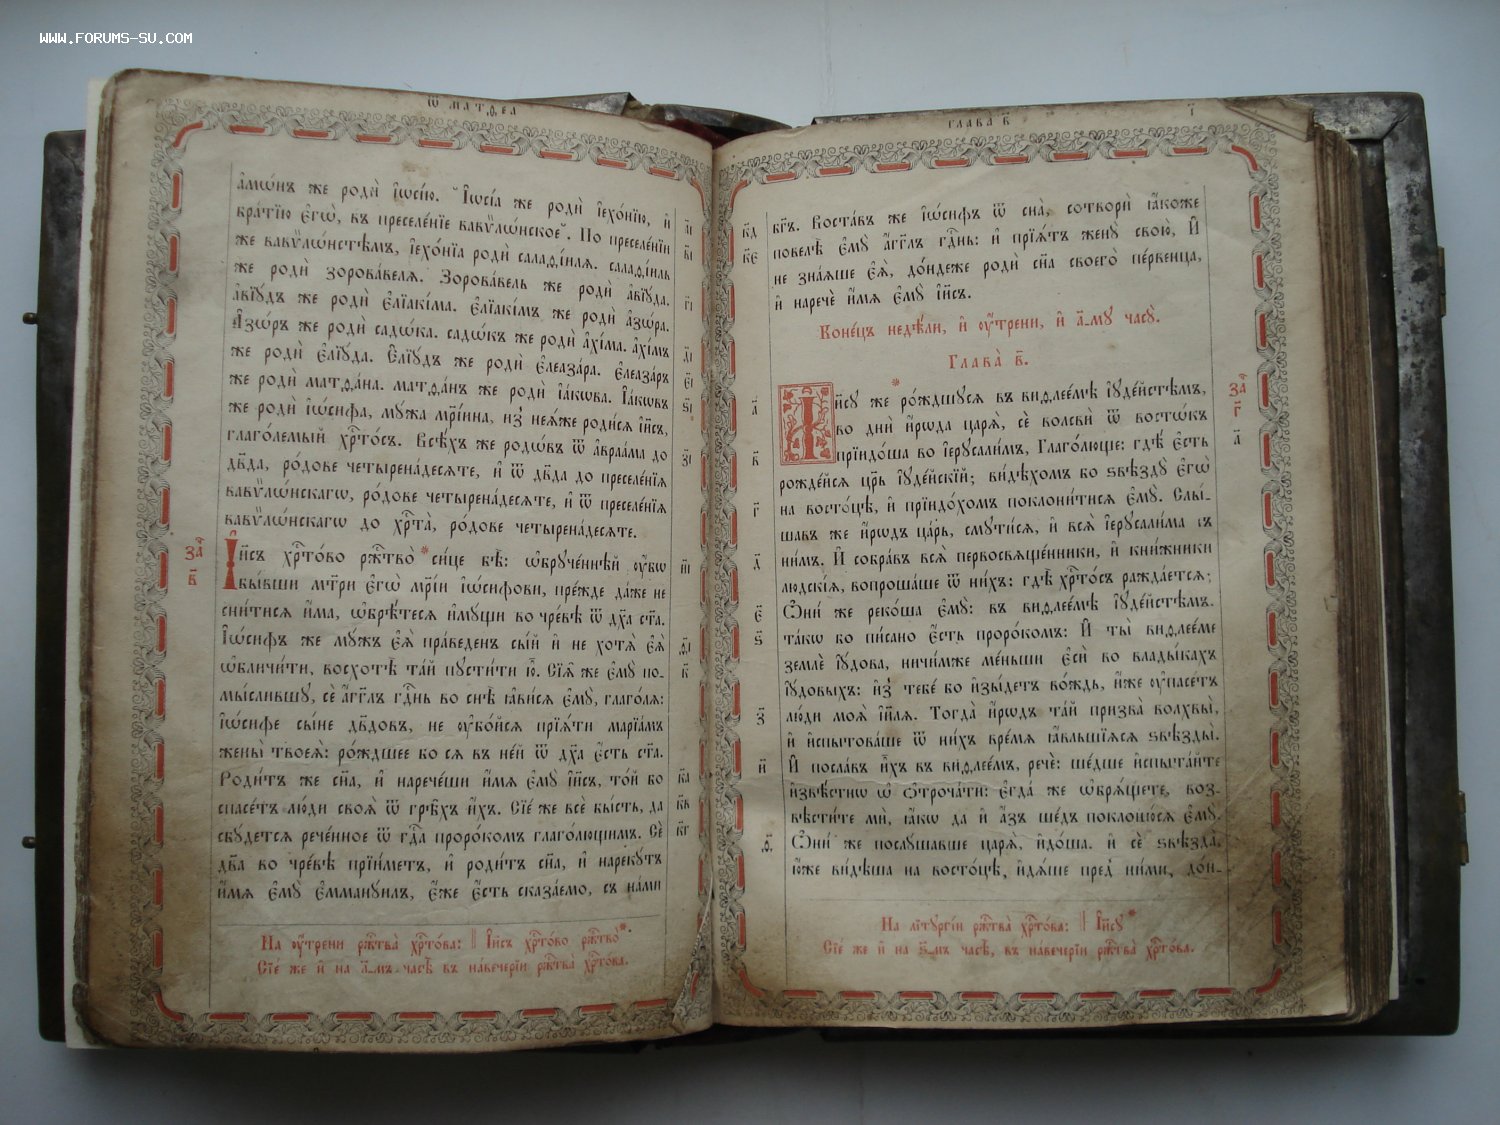 WWW.FORUMS-SU.COM
ѿ матѳеа
а҆мѡ́нъ же родѝ і҆ѡсі́ю. І҆ѡсі́а же родѝ і҆ехо́нїю, и҆
бра́тїю є҆гѡ̀, въ преселе́нїе вавѷлѡ́нское. По преселе́нїи
же вавѷлѡ́нстѣмъ, і҆ехо́нїа родѝ салаѳі́илѧ. салаѳі́иль
же родѝ зорова́велѧ. Зорова́вель же родѝ а҆вїꙋ́да.
а҆вїꙋ́дъ же родѝ є҆лїакі́ма. є҆лїакі́мъ же родѝ а҆зѡ́ра.
А҆зѡ́ръ же родѝ садѡ́ка. садѡ́къ же родѝ а҆хі́ма. а҆хі́мъ
же родѝ є҆лїꙋ́да. Є҆лїꙋ́дъ же родѝ є҆леаза́ра. є҆леаза́ръ
же родѝ матѳа́на. матѳа́нъ же родѝ і҆а́кѡва. І҆а́кѡвъ
же родѝ і҆ѡ́сифа, мꙋ́жа мр҃і́ина, и҆з̾ неѧ́же роди́сѧ і҆и҃съ,
глаго́лемый хрⷭ҇то́съ. Всѣ́хъ же родѡ́въ ѿ а҆враа́ма до
дв҃да, ро́дове четырена́десѧте, и҆ ѿ дв҃да до преселе́нїѧ
вавѷлѡ́нскагѡ, ро́дове четырена́десѧте, и҆ ѿ преселе́нїѧ
вавѷлѡ́нскагѡ до хрⷭ҇та̀, ро́дове четырена́десѧте.
І҆и҃съ хрⷭ҇то́во ржⷭ҇тво̀ * си́це бѣ: ѡ҆брꙋче́ннѣй ᲂу҆́бѡ
бы́вши мт҃ри є҆гѡ̀ мр҃і́и і҆ѡ́сифови, пре́жде да́же не
сни́тисѧ и҆́ма, ѡ҆брѣ́тесѧ и҆мꙋ́щи во чре́вѣ ѿ дх҃а ст҃а.
І҆ѡ́сифъ же мꙋ́жъ є҆ѧ̀ пра́веденъ сы́й и҆ не хотѧ̀ є҆ѧ̀
ѡ҆бличи́ти, восхотѣ̀ та́й пꙋсти́ти ю҆̀. Сїѧ̑ же є҆мꙋ̀ по-
мы́слившꙋ, сѐ а҆́гг҃лъ гдⷭ҇нь во снѣ̀ ꙗ҆ви́сѧ є҆мꙋ̀, глаго́лѧ:
і҆ѡ́сифе сы́не дв҃довъ, не ᲂу҆бо́йсѧ прїѧ́ти марїа́мъ
жены̀ твоеѧ̀: ро́ждшее бо сѧ въ не́й ѿ дх҃а є҆́сть ст҃а.
Роди́тъ же сн҃а, и҆ нарече́ши и҆́мѧ є҆мꙋ̀ і҆и҃съ, то́й бо
спасе́тъ лю́ди своѧ̑ ѿ грѣ̑хъ и҆́хъ. Сїе́ же всѐ бы́сть, да
сбꙋ́детсѧ рече́нное ѿ гдⷭ҇а проро́комъ глаго́лющимъ. Сѐ
дв҃а во чре́вѣ прїи́метъ, и҆ роди́тъ сн҃а, и҆ нарекꙋ́тъ
и҆́мѧ є҆мꙋ̀ є҆мманꙋи́лъ, є҆́же є҆́сть сказа́емо, съ на́ми
заⷱ҇
в҃
На ᲂу҆́трени ржⷭ҇тва̀ хрⷭ҇то́ва: І҆и҃съ хрⷭ҇то́во ржⷭ҇тво̀*.
Сїе́ же и҆ на а҃-мъ часѣ̀ въ наве́черїи ржⷭ҇тва̀ хрⷭ҇то́ва.
глава̀ в҃
і҃
бг҃ъ. Воста́въ же і҆ѡ́сифъ ѿ сна̀, сотворѝ ꙗ҆́коже
повелѣ̀ є҆мꙋ̀ а҆́гг҃лъ гдⷭ҇нь: и҆ прїѧ́тъ женꙋ̀ свою̀, И҆
не зна́ѧше є҆ѧ̀, до́ндеже родѝ сн҃а своего̀ пе́рвенца,
и҆ наречѐ и҆́мѧ є҆мꙋ̀ і҆и҃съ.
Коне́цъ недѣ́ли, и҆ ᲂу҆́трени, и҆ а҃-мꙋ часꙋ̀.
Глава̀ в҃.
І҆и҃сꙋ же ро́ждшꙋсѧ * въ виѳлее́мѣ і҆ꙋде́йстѣмъ,
во дни̑ и҆́рѡда царѧ̀, сѐ волсвѝ ѿ востѡ́къ
прїидо́ша во і҆ерꙋсали́мъ, Глаго́люще: гдѣ̀ є҆́сть
рожде́йсѧ цр҃ь і҆ꙋде́йскїй; ви́дѣхомъ бо ѕвѣздꙋ̀ є҆гѡ̀
на восто́цѣ, и҆ прїидо́хомъ поклони́тисѧ є҆мꙋ̀. Слы́-
шавъ же и҆́рѡдъ ца́рь, смꙋти́сѧ, и҆ всѧ̀ і҆ерꙋсали́ма съ
ни́мъ. И҆ собра́въ всѧ̑ первосвѧще́нники, и҆ кни́жники
людскі́ѧ, вопроша́ше ѿ ни́хъ: гдѣ̀ хрⷭ҇то́съ ражда́етсѧ;
Ѻ҆ни́ же реко́ша є҆мꙋ̀: въ виѳлее́мѣ і҆ꙋде́йстѣмъ.
та́кѡ бо пи́сано є҆́сть проро́комъ: И҆ ты̀ виѳлее́ме
землѐ і҆ꙋ́дова, ничи́мже ме́ньши є҆сѝ во влады́кахъ
і҆ꙋ́довыхъ: и҆з̾ тебе́ бо и҆зы́детъ во́ждь, и҆́же ᲂу҆пасе́тъ
лю́ди моѧ̑ і҆и҃лѧ. Тогда̀ и҆́рѡдъ та́й призва̀ волхвы̀,
и҆ и҆спытова́ше ѿ ни́хъ вре́мѧ ꙗ҆́вльшїѧсѧ ѕвѣзды̀.
И҆ посла́въ и҆̀хъ въ виѳлее́мъ, речѐ: ше́дше и҆спыта́йте
и҆звѣ́стнѡ ѡ҆ ѻ҆троча́ти: є҆гда́ же ѡ҆брѧ́щете, воз-
вѣсти́те мѝ, ꙗ҆́кѡ да и҆ а҆́зъ ше́дъ поклоню́сѧ є҆мꙋ̀.
Ѻ҆ни́ же послꙋ́шавше царѧ̀, и҆до́ша. и҆ сѐ ѕвѣзда̀,
ю҆́же ви́дѣша на восто́цѣ, и҆дѧ́ше пред̾ ни́ми, до́н-
заⷱ҇
г҃
а҃
На літꙋргі́и ржⷭ҇тва̀ хрⷭ҇то́ва: І҆и҃сꙋ*
Сїе́ же и҆ на ѕ҃-мъ часѣ̀, въ наве́черїи ржⷭ҇тва̀ хрⷭ҇то́ва.